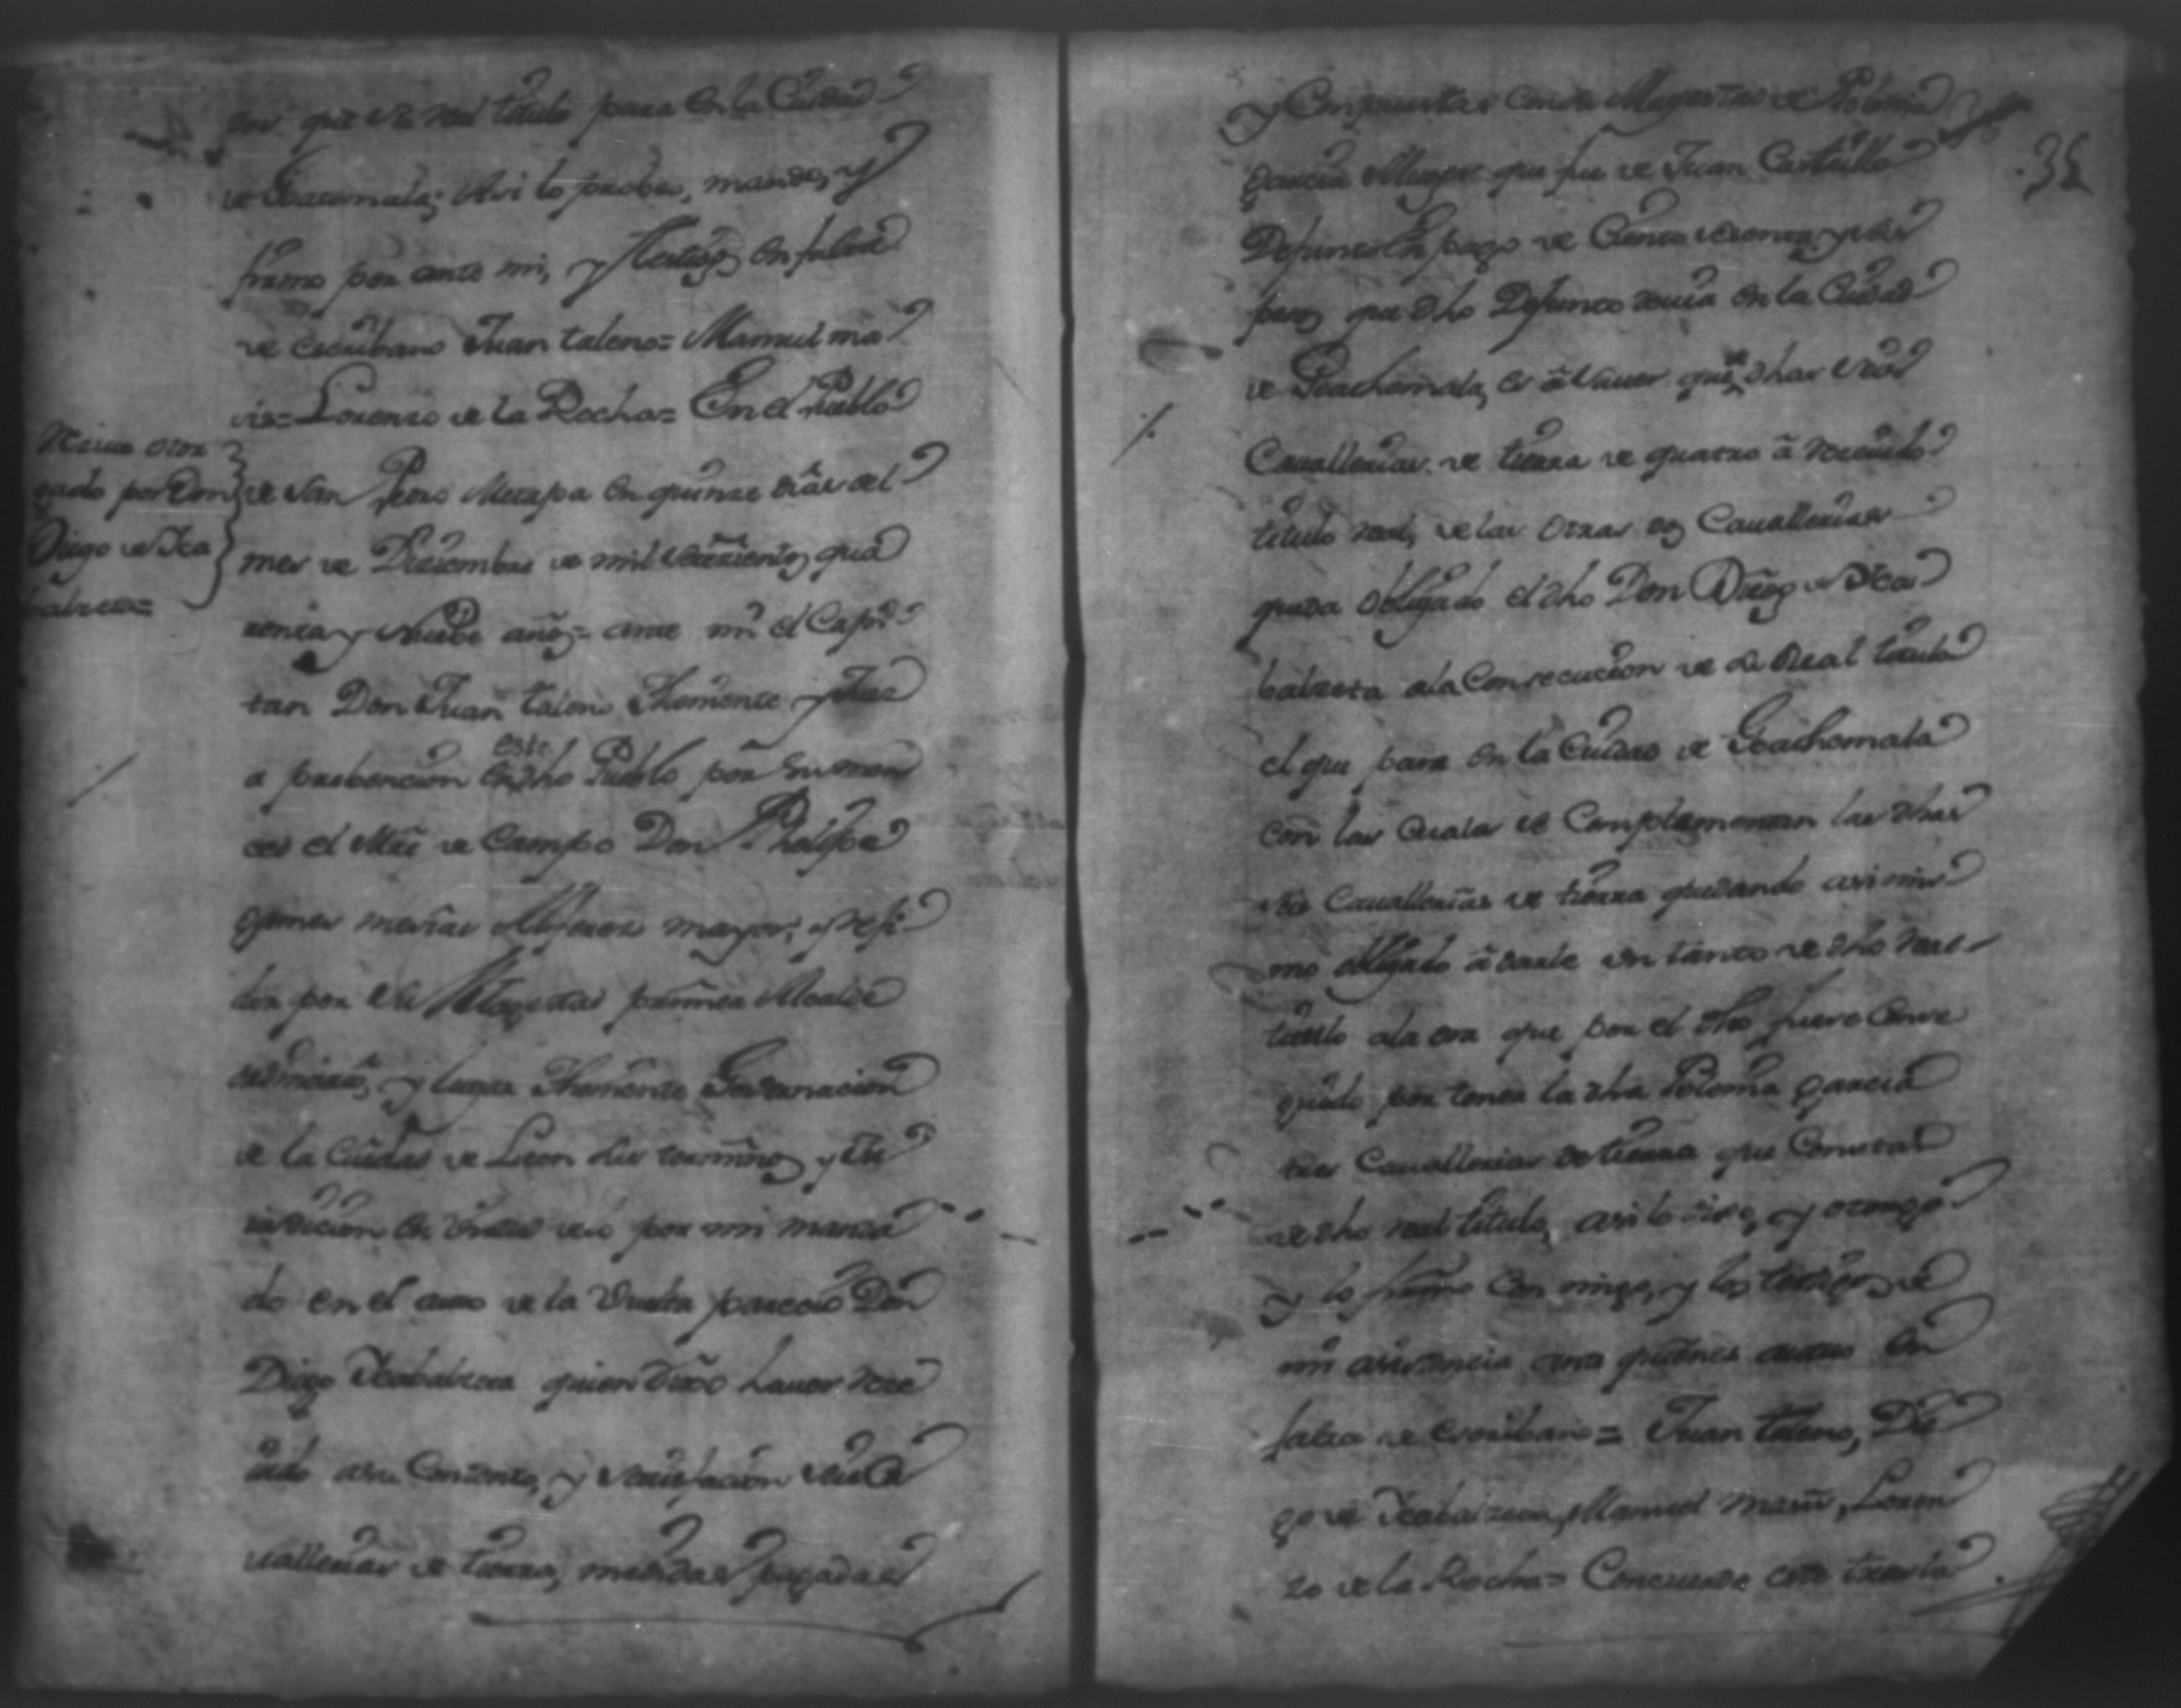 que el real título para en la Ciudad
de Goatemala; Asi lo probeo, mando, y
firmo por ante mi, y testigos en falta
de escribano Juan taleno= Manuel ma
rin= Lorenzo de la Rocha= En el Pueblo
Resiuo otor
gado por Don
Diego de Ica
balzeta=
de San Pedro Metapa en quinze dias del
mes de Diziembre de mil setezientos qua
renta y Nuebe años= ante mi el Capi
tan Don Juan taleno Theniente y Juez
a prebencion en este dho Pueblo por su mer
ced el Mre de Campo Don Phelipe
gamez mesias Alferez mayor, y reji
dor por Su Magestad primer Alcalde
ordinario, y lugar Theniente Governacion
de la Ciudad de Leon sus terminos y Ju
risdicion en birtud de lo por mi manda
do en el auto de la buelta parecio Don
Diego Icabalzeta quien dixo hauer reze
uido a su Contento, y satisfacion seis Ca
uallerias de tierra, medidas pagadas
35
y Compuestas con su Magestad de Polonia
garcia Muger que fue de Juan Castillo
Defunto En pago de Ciento sesenta y seis
pesos que dho Defunto deuia en la Ciudad
de Goathemala, es a sauer que de dhas seis
Cauallerias de tierra de quatro a reseuido
título real, de las otras dos Cauallerias
queda obligado el dho Don Diego de Ica
balzeta a la Consecucion de su Real titulo
el que para en la Ciudad de Goathemala
con las Cuales se Complementan las dhas
seis Cauallerias de tierra quedando asimis
mo obligado a darle un tanto de dho real
titulo a la ora que por el dho fuere Conse
guido por tener la dha Polonia garcia
tres Cauallerias de tierra que Constan
de dho real titulo, asi lo dixo, y otorgo
y lo firmo Con migo, y los testigos de
mi asistencia ante quienes autuo En
falta de escribano= Juan taleno, Die
go de Icabalzeta, Manuel Marin, Loren
zo de la Rocha= Concuerda este traslado